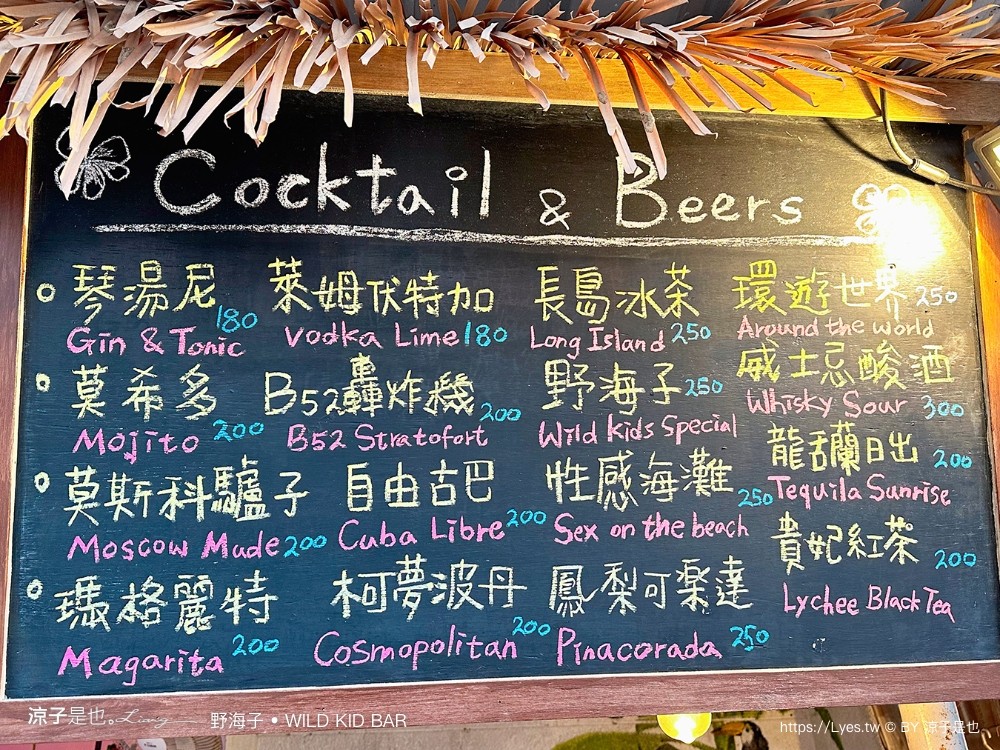 Cocktail & Beers
琴湯尼 萊姆伏特加 長島冰茶 環遊世界 250
Gin & Tonic 180 Vodka Lime 180 Long Island 250 Around the world
莫希多 B52轟炸機 野海子 250 威士忌酸酒
Mojito 200 B52 Stratofort 200 Wild kids Special Whisky Sour 300
莫斯科驢子 自由古巴 性感海灘 龍舌蘭日出 200
Moscow Made 200 Cuba Libre 200 Sex on the beach 250 Tequila Sunrise
瑪格麗特 柯夢波丹 鳳梨可樂達 貴妃紅茶 200
Magarita 200 Cosmopolitan 200 Pinacorada 250 Lychee Black Tea
涼子是也 Liang 野海子 • WILD KID BAR
https://Lyes.tw © BY 涼子是也